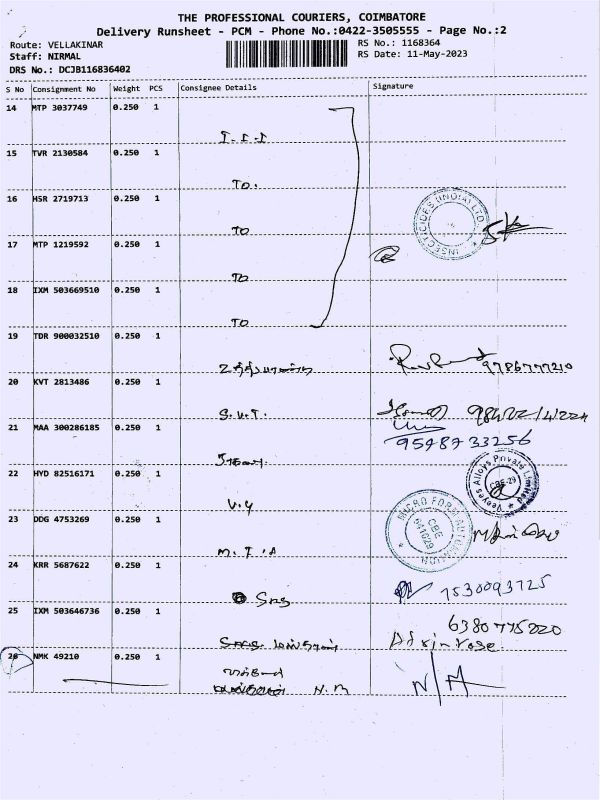 THE PROFESSIONAL COURIERS, COIMBATORE
Delivery Runsheet - PCM - Phone No.:0422-3505555 - Page No.:2
Route: VELLAKINAR
RS No.: 1168364
Staff: NIRMAL
RS Date: 11-May-2023
DRS No.: DCJB116836402
S No Consignment No Weight PCS Consignee Details Signature
14 MTP 3037749 0.250 1
I.I.I
15 TVR 2130584 0.250 1
TO.
16 HSR 2719713 0.250 1
INSECTICIDES (INDIA) LTD
TO
17 MTP 1219592 0.250 1
TO
18 IXM 503669510 0.250 1
TO
19 TDR 900032510 0.250 1
9786777210
20 KVT 2813486 0.250 1
S.V.T.
21 MAA 300286185 0.250 1
9598733256
22 HYD 82516171 0.250 1
Veeyes Alloys Private Limited
CBE-29
V.Y
23 DDG 4753269 0.250 1
MICRO FORM
CBE
641029
M.T.A
24 KRR 5687622 0.250 1
7530093725
25 IXM 503646736 0.250 1
6380775220
26 NMK 49210 0.250 1
N.M
N/A